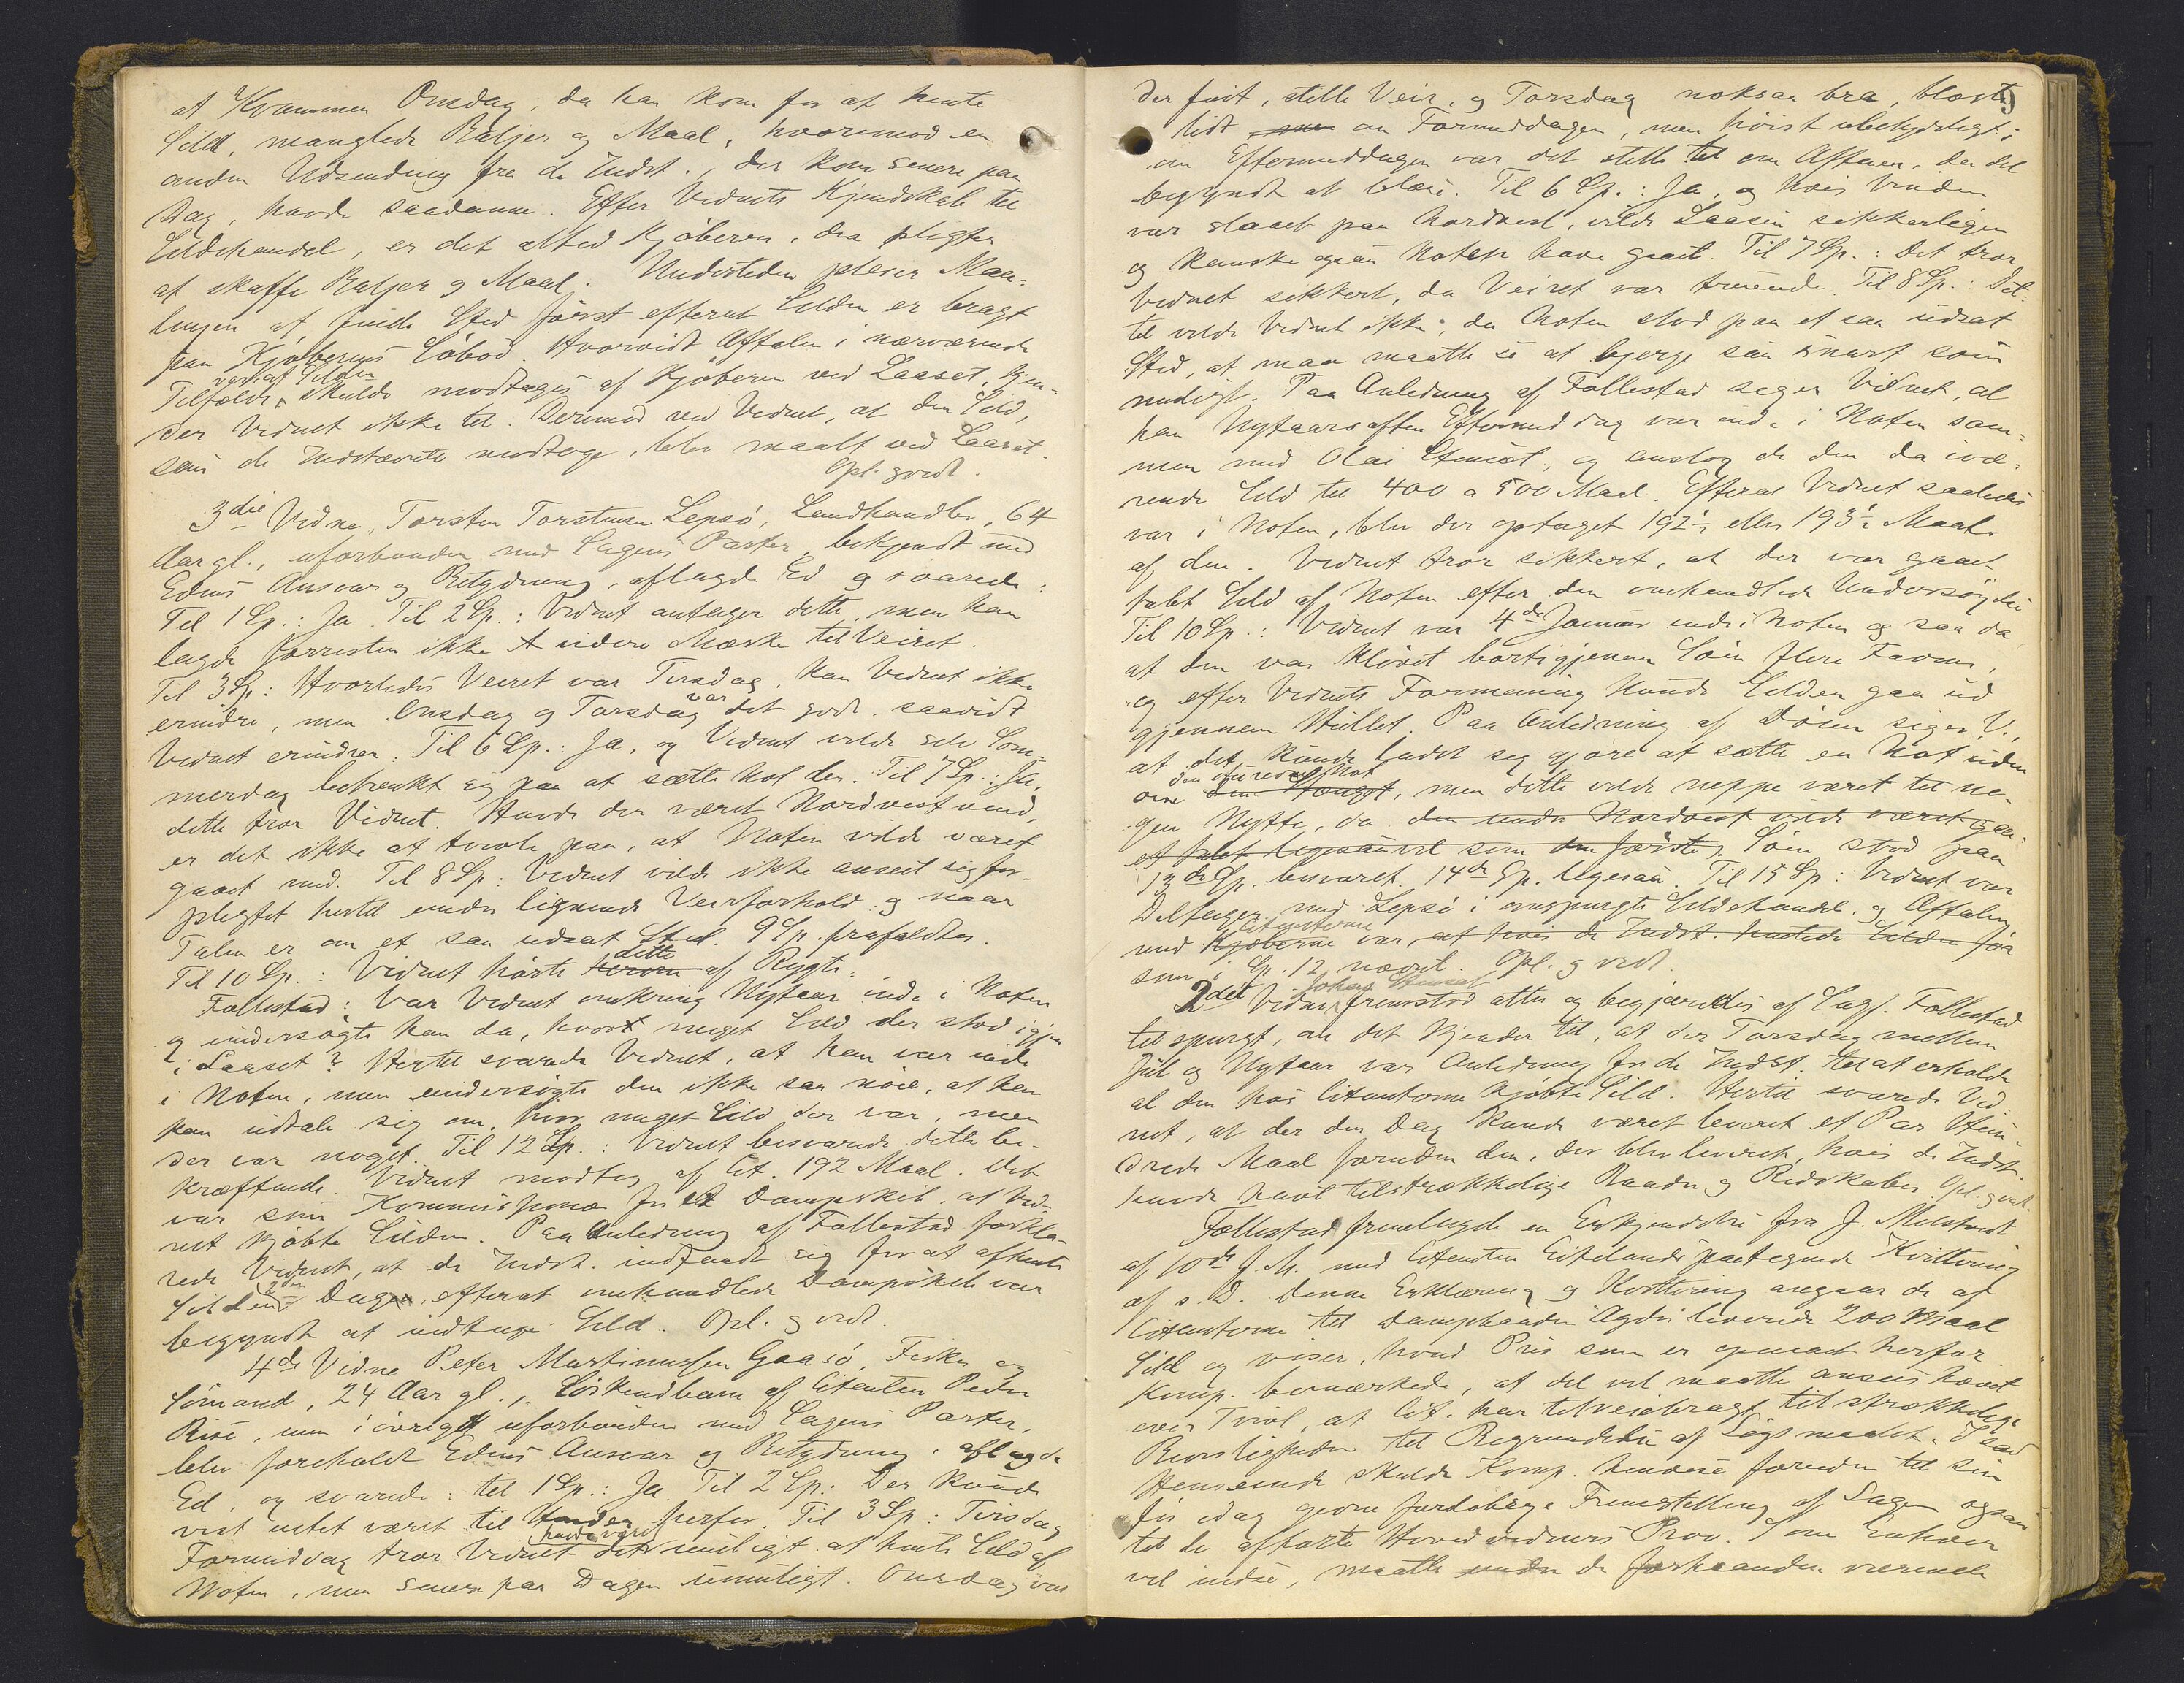 at Kvammen Onsdag, da han kom for at hente
Sild, manglede Baljer og Maal, hvorimod en
anden Udsending fra de Indst., der kom senere paa
Dag, havde saadanne. Efter Vidnets Kjendskab til
Sildehandel, er det altid Kjøberen, der pligter
at skaffe Baljer og Maal. Undertiden pleier Maa-
lingen af Sild Sted først efterat Silden er bragt
paa Kjøberens Søbod. Hvorvidt Aftalen i nærværende
Tilfælde var, at Silden skulde modtages af Kjøberen ved Laaset, kjen-
der Vidnet ikke til. Derimod ved Vidnet, at den Sild,
som de Indstævnte modtoge, blev maalt ved Laaset.
Opl. godk.
3die Vidne, Torsten Torstensen Lepsø, Landhandler, 64
Aar gl., uforbunden med Sagens Parter, bekjendt med
Edens Ansvar og Betydning, aflagde Ed og svarede:
Til 1 Sp.: Ja. Til 2 Sp.: Vidnet antager dette, men han
lagde forresten ikke videre Mærke til Veiret.
Til 3 Sp.: Hvorledes Veiret var Tirsdag, kan Vidnet ikke
erindre, men Onsdag og Torsdag var det godt, saavidt
Vidnet erindrer. Til 6 Sp.: Ja, og Vidnet vilde selv Som-
merdag betænkt sig paa at sætte Not der. Til 7 Sp.: Ja,
dette tror Vidnet. Havde der været Nordvestvind,
er det ikke at tvivle paa, at Noten vilde været
gaaet med. Til 8 Sp.: Vidnet vilde ikke anseet sig for-
pligtet hertil under lignende Veirforhold og naar
Talen er om et saa udsat Sted. 9 Sp. frafaldtes.
Til 10 Sp.: Vidnet hørte herom dette af Rygte.
Follestad: Var Vidnet omkring Nytaar inde i Noten
og undersøgte han da, hvort meget Sild der stod igjen
i Laaset? Hertil svarede Vidnet, at han var inde
i Noten, men undersøgte den ikke saa nøie, at han
kan udtale sig om, hvor meget Sild der var, men
der var noget. Til 12 Sp.: Vidnet besvarede dette be-
kræftende. Vidnet modtog af Cit. 192 Maal. Det
var som Kommissionær for et Dampskib, at Vid-
net kjøbte Silden. Paa Anledning af Follestad forkla-
rede Vidnet, at de Indst. indfandt sig for at afhente
Silden 2den Dagen, efterat omhandlede Dampskib var
begyndt at indtage Sild. Opl. g vedt.
4de Vidne Peter Martinussen Gaasø, Fisker og
Sømand, 24 Aar gl., Søskendbarn af Citanten Peder
Riise, men iøvrigt uforbunden med Sagens Parter,
blev foreholdt Edens Ansvar og Betydning, aflagde
Ed, og svarede: til 1 Sp.: Ja. Til 2 Sp.: Der kunde
vist intet været til Hinder herfor. Til 3 Sp.: Tirsdag
Formiddag tror Vidnet det havde været muligt at hente Sild af
Noten, men senere paa Dagen umuligt. Onsdag var
9
der fint, stille Veir, og Torsdag noksaa bra, blæste
lidt men om Formiddagen, men høist ubetydeligt;
om Eftermiddagen var det stille til om Aftenen, da det
begyndte at blæse. Til 6 Sp.: Ja, og hvis Vinden
var slaaet paa Nordvest, vilde Laasen sikkerligen
og kanske ogsaa Noten have gaaet. Til 7 Sp.: Det tror
Vidnet sikkert, da Veiret var truende. Til 8 Sp.: Det-
te vilde Vidnet ikke, da Noten stod paa et saa udsat
Sted, at man maatte se at bjerge saa snart som
muligt. Paa Anledning af Follestad siger Vidnet, at
han Nytaarsaften Eftermiddag var inde i Noten sam-
men med Olai Stensøt, og anslog de den da ivæ-
rende Sild til 400 a 500 Maal. Efterat Vidnet saaledes
var i Noten, blev der optaget 192½ eller 193½ Maal
af den. Vidnet tror sikkert, at der var gaaet
tabt Sild af Noten efter den omhandlede Undersøgelse
Til 10 Sp.: Vidnet var 4de Januar inde i Noten og saa da
at den var kløvet bortigjennem Siden flere Favne,
og efter Vidnets Formening kunde Silden gaa ud
gjennem Hullet. Paa Anledning af Døsen siger V.,
at det kunde ladet sig gjøre at sætte en Not uden-
om den Stængt den iturevne Not, men dette vilde neppe været til no-
gen Nytte, da den under Nordvest vilde været gaa-
et tabt ligesaavel som den første. Søen stod paa
13de Sp. besvaret. 14de Sp. ligesaa. Til 15 Sp: Vidnet var
Deltager med Lepsø i omspurgte Sildehandel, og Aftalen
med Kjøberne Citanterne var, at hvis de Indst. hentede Silden før
som i Sp. 12 nævnt. Opl. g vedt.
2det Vidne, Johan Stensøt fremstod atter og begjærtes af Sagf. Follestad
tilspurgt, om det kjender til, at der Torsdag mellem
Jul og Nytaar var Anledning for de Indst. til at erholde
al den hos Citanterne kjøbte Sild. Hertil svarede Vid-
net, at der den Dag kunde været leveret et Par Hun-
drede Maal foruden den, der blev leveret, hvis de Indst.
havde havt tilstrækkelige Baade og Redskaber. Opl. g vedt.
Follestad fremlagde en Erkjendelse fra J. Mushaut
af 10de f. M. med Citanten Eikelands paategnede Kvittering
af s. D. Denne Erklæring og Kvittering angaar de af
Citanterne til Dampbaaden Agdi leverede 200 Maal
Sild og viser, hvad Pris som er opnaaet herfor.
Komp. bemærkede, at det vel maatte ansees hævet
over Tvivl, at Cit. har tilveiebragt tilstrækkelige
Bevisligheder til Begrundelse af Søgsmaalet. I saa
Henseende skulde Komp. henvise foruden til sin
før idag givne foreløbige Fremstilling af Sagen ogsaa
til de afhørte Hovedvidners Prov. Som Enhver
vil indse, maatte under de forhaanden værende